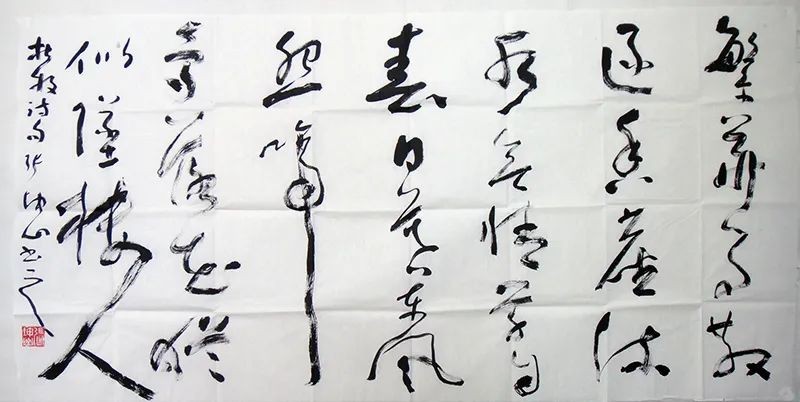 繁華事散
逐香塵流
水無情草自
春日暮東風
怨啼
鳥落花猶
似墜樓人
杜牧诗句张坤山书